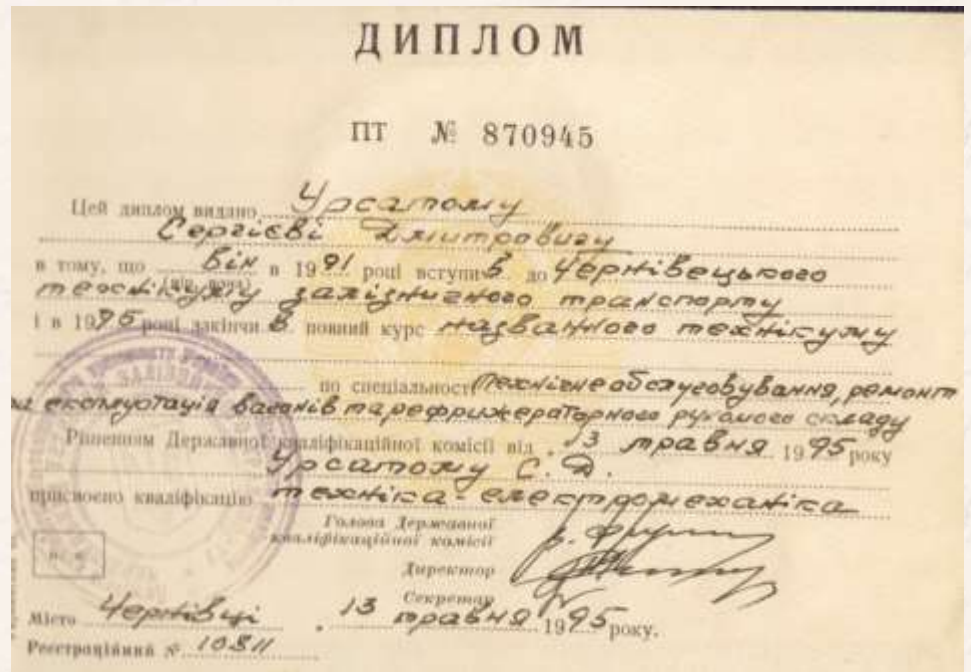 ДИПЛОМ
ПТ № 870945
Цей диплом видано Урсатому
Сергієві Дмитровичу
в тому, що він в 1991 році вступив до Чернівецького
технікуму залізничного транспорту
і в 1995 році закінчив повний курс названного технікуму
по спеціальності Технічне обслуговування, ремонт
та експлуатація вагонів та рефрижераторного рухомого складу
Рішенням Державної кваліфікаційної комісії від 13 травня 1995 року
Урсатому С. Д.
присвоєно кваліфікацію техніка-електромеханіка
Голова Державної
кваліфікаційної комісії
Директор
Секретар
Місто Чернівці 13 травня 1995 року.
Реєстраційний №